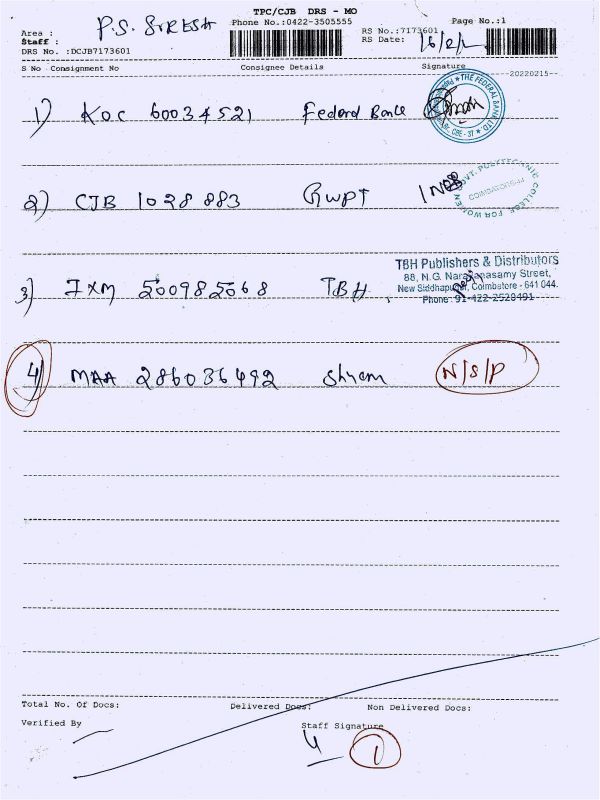 TPC/CJB DRS - MO
P.S. SURESH
Phone No.:0422-3505555
Page No.:1
Area :
Staff :
RS No.:7173601
RS Date: 16/2/
DRS No. :DCJB7173601
S No Consignment No Consignee Details Signature
20220215-
1) KOC 60034521 Federal Bank
THE FEDERAL BANK LTD. CBE-37
2) CJB 1028883 GWPT
GOVT. POLYTECHNIC COLLEGE FOR WOMEN COIMBATORE-44
3) IXM 500985068 TBH,
TBH Publishers & Distributors
88, N.G. Narayanasamy Street,
New Siddhapudur, Coimbatore - 641 044.
Phone: 91-422-2520491
4) MAA 286036492 Shyam N/S/P
Total No. Of Docs: Delivered Docs: Non Delivered Docs:
Verified By Staff Signature
4 1